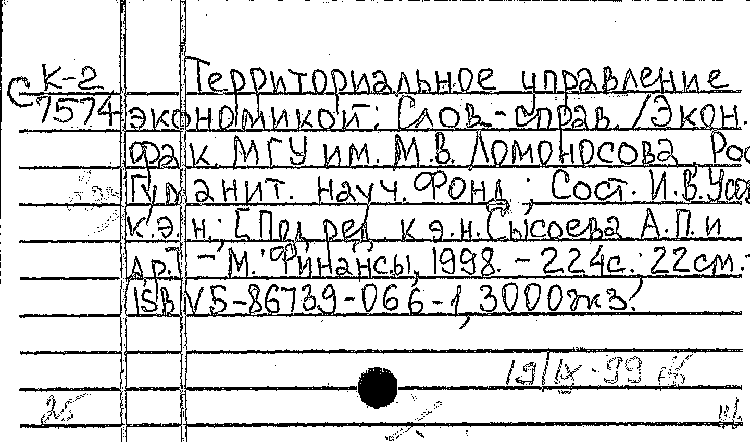 С К-2
7574
Территориальное управление
экономикой: Слов.-справ. / Экон.
фак. МГУ им. М.В. Ломоносова. Рос
Гуманит. науч. Фонд; Сост. И.В.
к.э.н.; [Под ред. к.э.н. Сысоева А.П. и
др.] – М.: Финансы, 1998. – 224с.; 22см.-
ISBN 5-86739-066-1, 3000экз.
19/IX-99
25